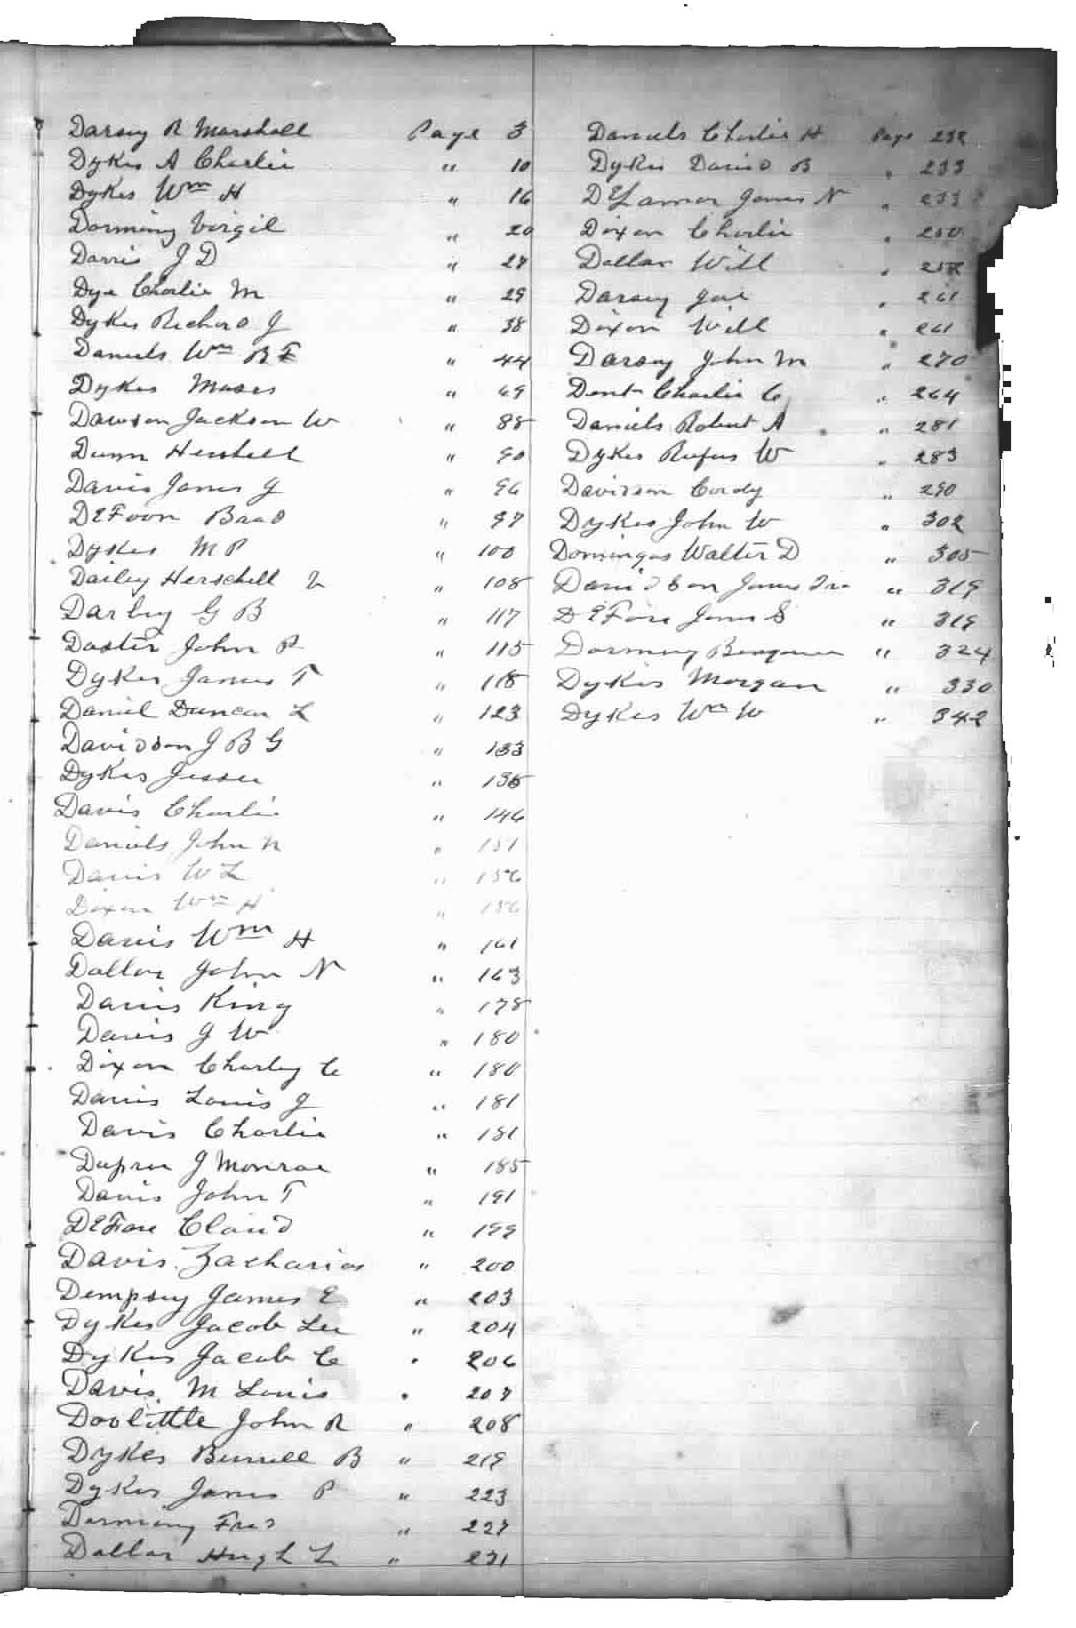 Darsey R Marshall Page 3
Dykes A Charlie " 10
Dykes Wm H " 16
Dorminy Virgil " 20
Davis J D " 27
Dye Charlie M " 29
Dykes Richard J " 38
Daniels Wm B F " 44
Dykes Moses " 69
Dawson Jackson W " 88
Dunn Hershell " 90
Davis James J " 96
DEFoor Brad " 97
Dykes M P " 100
Dailey Herschell " 108
Darley G B " 117
Doster John P " 115
Dykes James T " 118
Daniel Duncan L " 123
Davidson J B G " 133
Dykes Jesse " 135
Davis Charlie " 146
Daniels John N " 151
Davis W L " 156
Dixon Wm H " 156
Davis Wm H " 161
Dollar John N " 163
Davis King " 178
Davis J W " 180
Dixon Charley C " 180
Davis Louis J " 181
Davis Charlie " 181
Dupree J Monroe " 185
Davis John T " 191
DEFore Claud " 199
Davis Zacharias " 200
Dempsey James E " 203
Dykes Jacob Lee " 204
Dykes Jacob C " 206
Davis M Louis " 207
Doolittle John R " 208
Dykes Burrell B " 219
Dykes James P " 223
Dorminy Fred " 227
Dollar Hugh L " 231
Daniels Charlie H Page 232
Dykes David B " 233
DELamar James N " 233
Dixon Charlie " 250
Dollar Will "
Darsey Joe " 261
Dixon Will " 261
Darsey John M " 270
Dent Charlie C " 264
Daniels Robert A " 281
Dykes Rufus W " 283
Davidson Cordy " 290
Dykes John W " 302
Domingos Walter D " 305
Davidson James " 319
DEFore James S " 319
Dorminy " 324
Dykes Morgan " 330
Dykes Wm W " 342